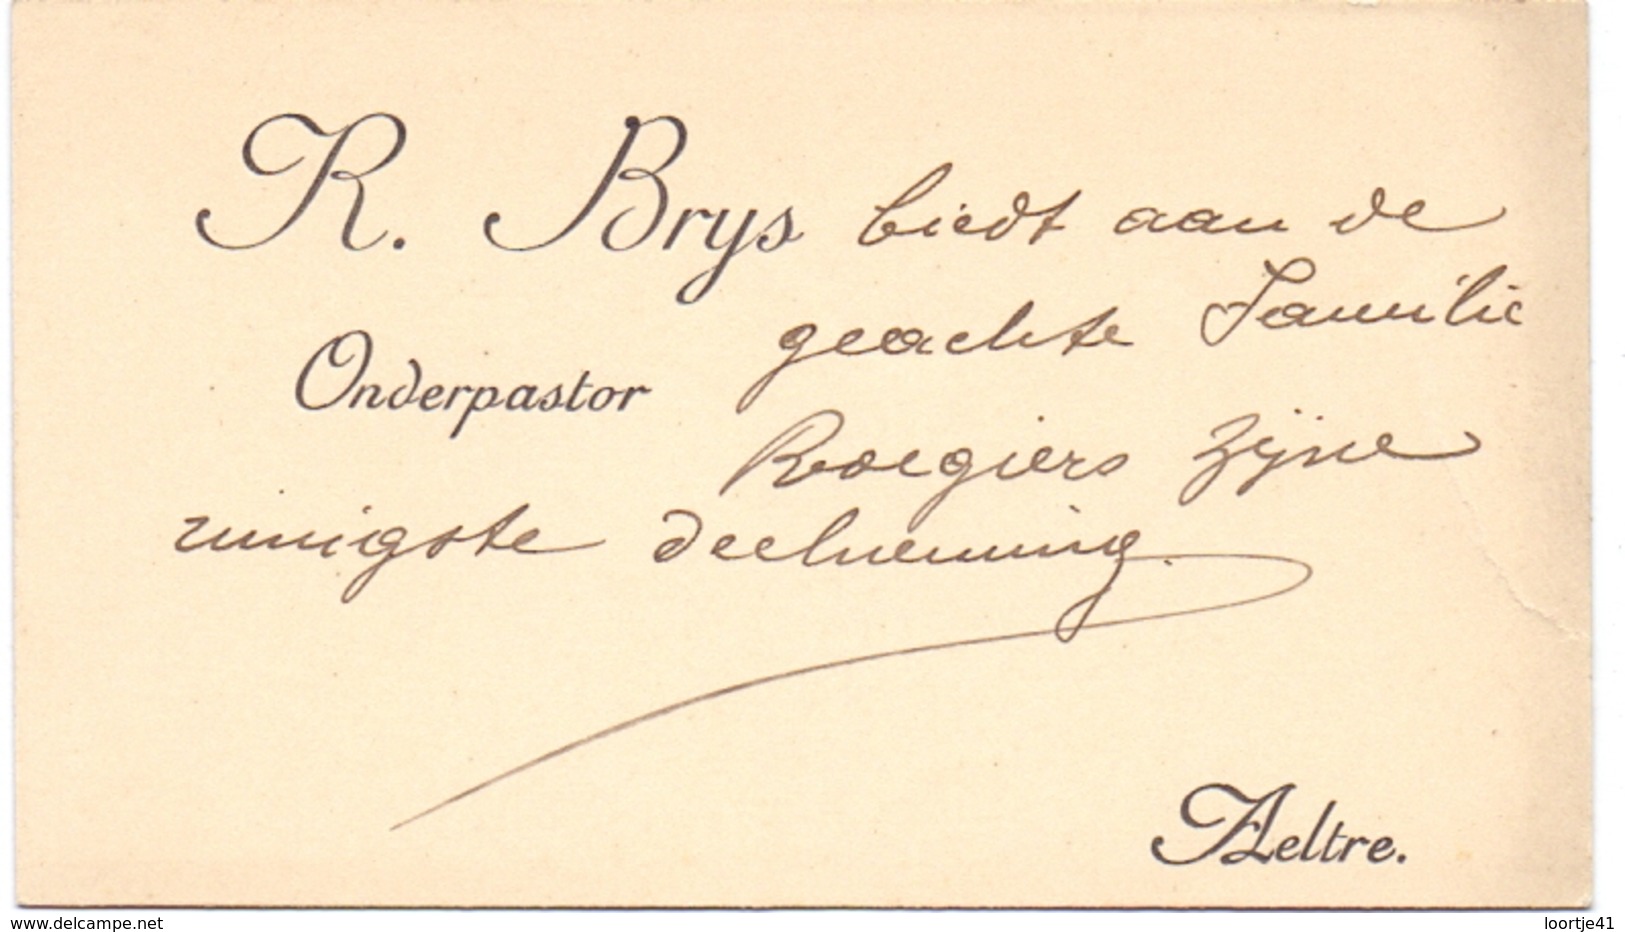 R. Brys biedt aan de
geachte Familie
Onderpastor
Roegiers zijne
innigste deelneming.
Aeltre.
© delcampe.net
loortje41